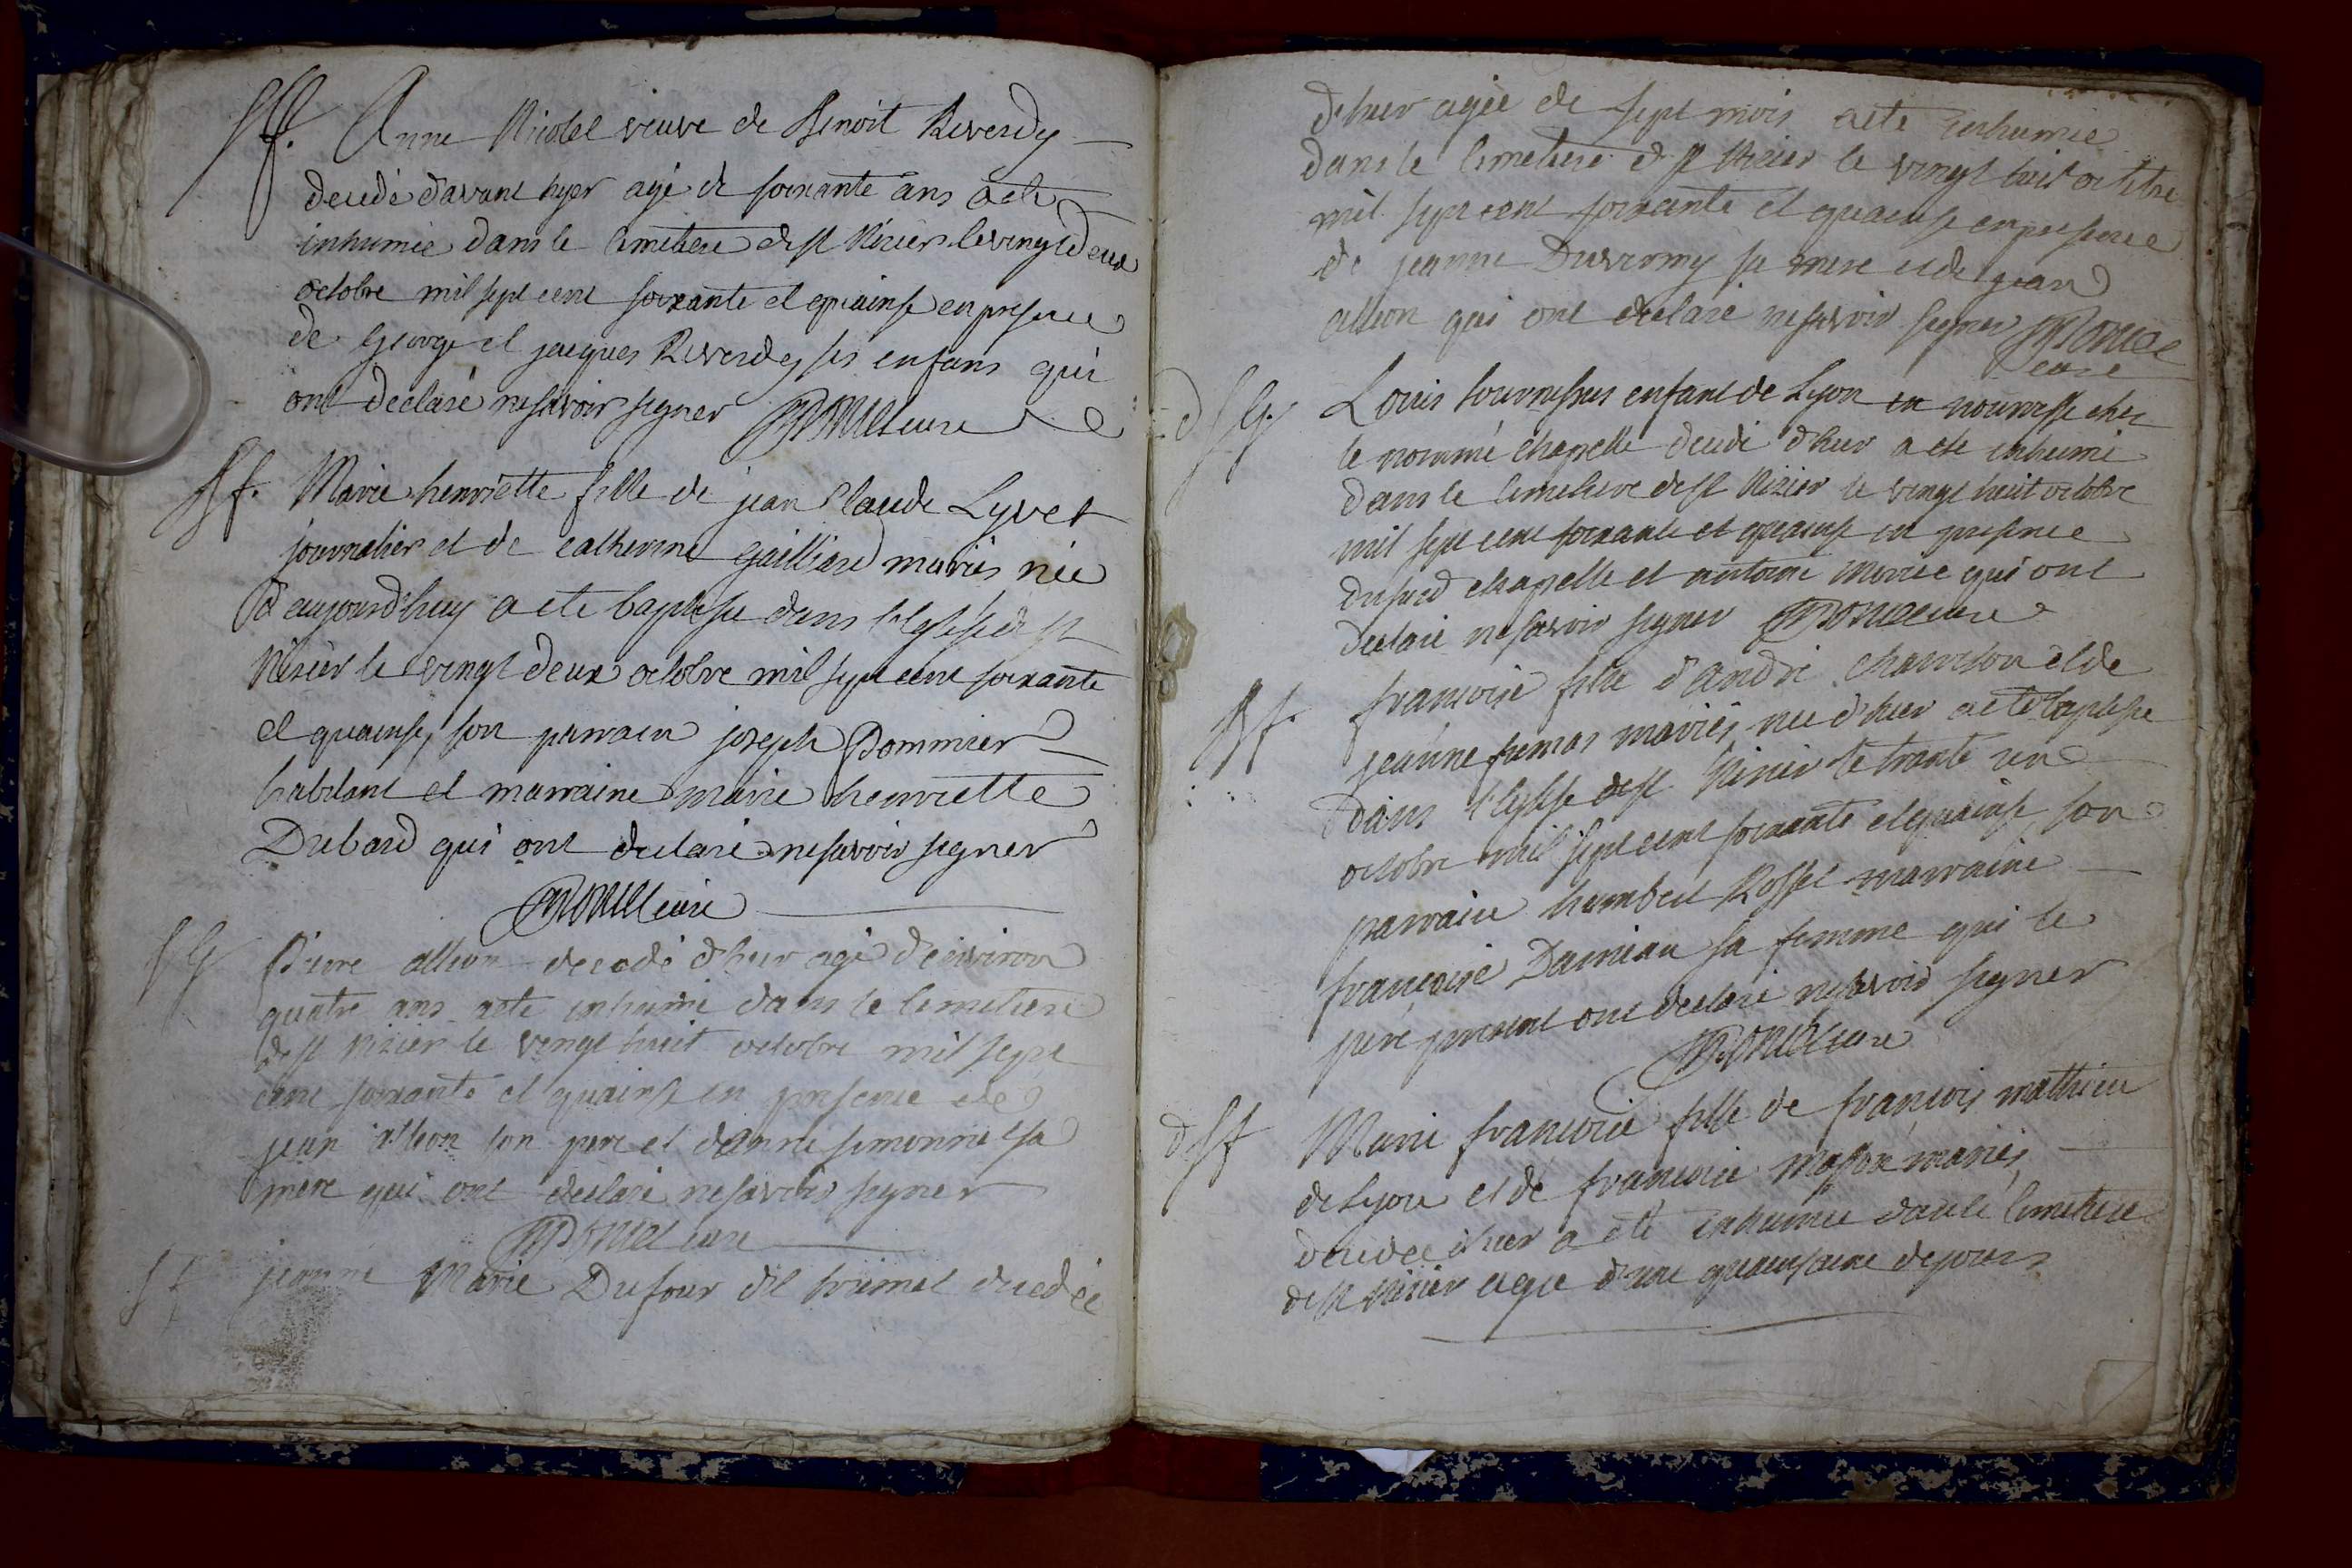 Sf. Anne Nicolet veuve de Benoit Reverdy
decedé d'avant hyer agé de soixante ans a ete
inhumée dans le Cimetiere de st Nizier le vingt deux
octobre mil sept cent soixante et quainse en presence
de George et jacques Reverdy ses enfans qui
ont declaré ne savoir signer Poncet curé
Sf. Marie henriette fille de jean Claude Lyvet
journalier et de catherine Gailliard mariés née
d'aujourd'huy a ete baptisée dans l'Eglise de st
Nizier le vingt deux octobre mil sept cent soixante
et quainse, son parrain joseph Pommier
habitant et marraine marie henriette
Dubard qui ont declaré ne savoir signer
Poncet curé
Sg Pierre allion decedé d'hier agé d'environ
quatre ans a ete inhumé dans le Cimetiere
de st Nizier le vingt huit octobre mil sept
cent soixante et quainse en presence de
jean allion son pere et d'anne simonnet sa
mere qui ont declaré ne savoir signer
Poncet curé
Sf jeanne Marie Dufour dit trimet decedée
d'hier agée de sept mois a ete inhumée
dans le Cimetiere de st Nizier le vingt huit octobre
mil sept cent soixante et quainse en presence
de jeanne Duverny sa mere et de jean
allion qui ont declaré ne savoir signer Poncet
curé
d Sg. Louis enfant de Lyon en nourisse chez
le nommé chapelle decedé d'hier a ete inhumé
dans le Cimetiere de st Nizier le vingt huit octobre
mil sept cent soixante et quainse en presence
dudit chapelle et antoine qui ont
declaré ne savoir signer Poncet curé
Sf. francoise fille d'andré et de
jeanne mariés née d'hier a ete baptisée
dans l'Eglise de st Nizier le trante un
octobre mil sept cent soixante et quainse son
parrain humbert Rosset marraine
francoise Damian sa femme qui le
pere present ont declaré ne savoir signer
Poncet curé
d Sf Marie francoise fille de francois mathieu
de Lyon et de francoise masson mariés
decedée d'hier a ete inhumée dans le Cimetiere
de st Nizier agée d'une quainsaine de jours